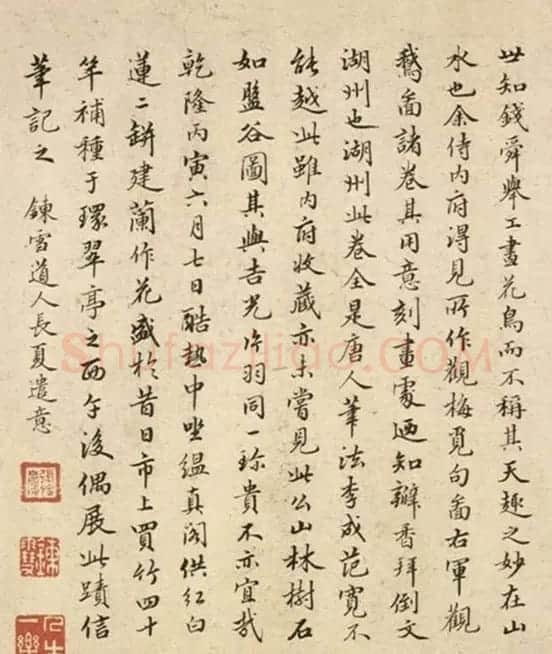 世知錢舜舉工畫花鳥而不稱其天趣之妙在山
水也余侍内府得見所作觀梅覓句啚右軍觀
鵝啚諸卷其用意刻畫處迺知瓣香拜倒文
湖州也湖州此卷全是唐人筆法李成范寬不
能越此雖内府收藏亦未嘗見此公山林樹石
如盤谷圖其與吉光片羽同一珎貴不亦宜哉
乾隆丙寅六月七日酷热中坐緼真阁供红白
蓮二缾建蘭作花盛於昔日市上買竹四十
竿補種于環翠亭之西午後偶展此蹟信
筆記之 鍊雪道人長夏遣意
Shufaziliao.COM